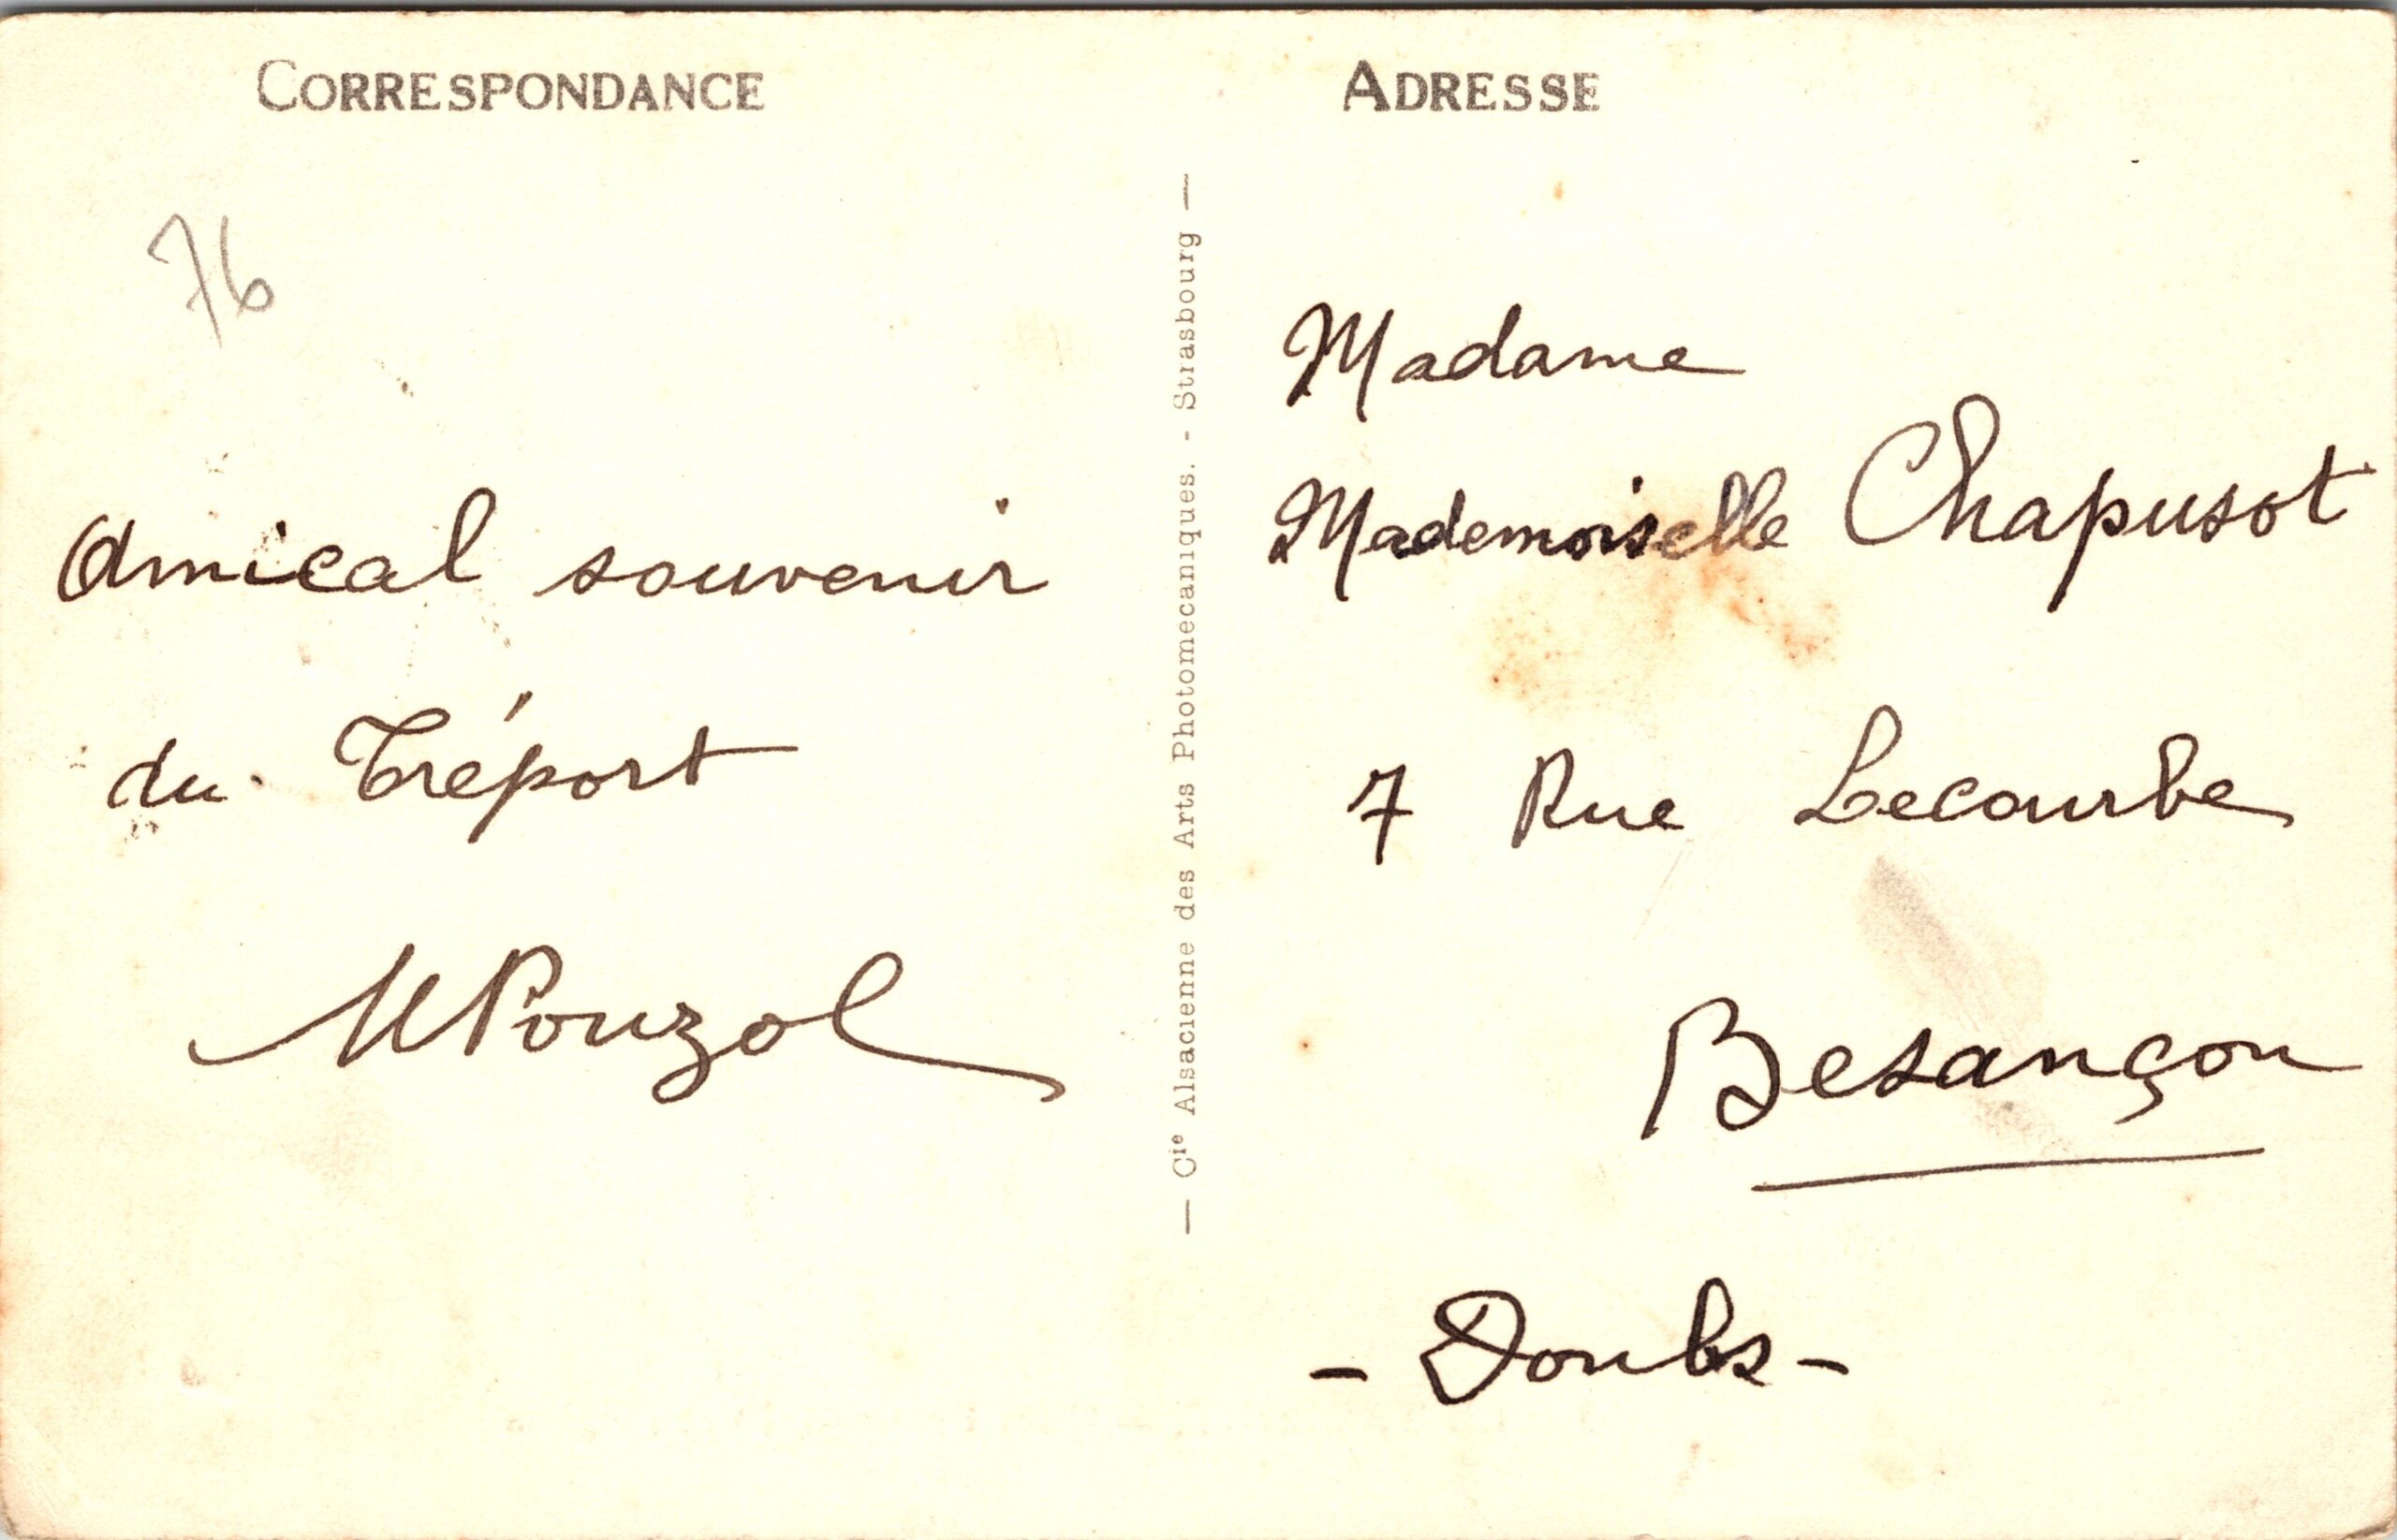 CORRESPONDANCE
76
Amical souvenir
du Tréport
MPouzol
— Cie Alsacienne des Arts Photomecaniques. - Strasbourg —
ADRESSE
Madame
Mademoiselle Chapusot
7 Rue Lecourbe
Besançon
- Doubs -